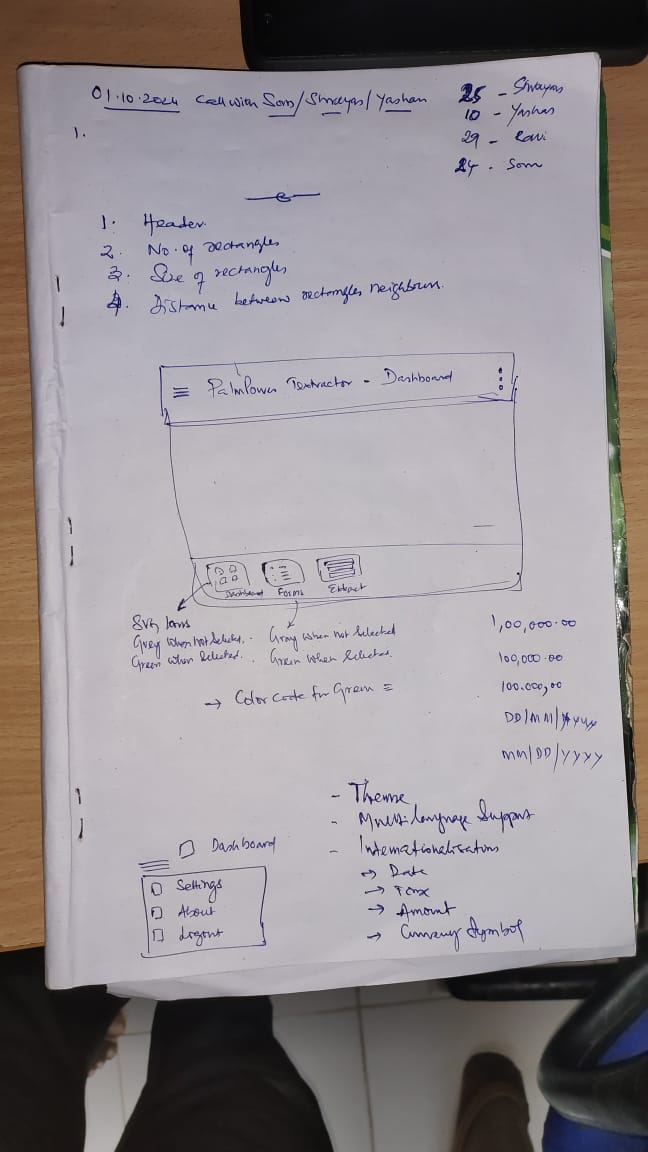 01.10.2024 Call with Som/Shreyas/Yashas
25 - Shreyas
10 - Yashas
29 - Ravi
24 - Som
1.
1. Header
2. No. of rectangles
3. Size of rectangles
4. Distance between rectangles neighbours.
PalmPower Textractor - Dashboard
Dashboard Forms Extract
SVG Icons
Grey when not selected. Gray when not selected
Green when selected. Green when selected.
→ Color code for Green =
1,00,000.00
100,000.00
100.000,00
DD/MM/YYYY
MM/DD/YYYY
- Theme
- Multi language Support
- Internationalisation
→ Date
→ Amount
→ Currency Symbol
Dashboard
Settings
About
Logout